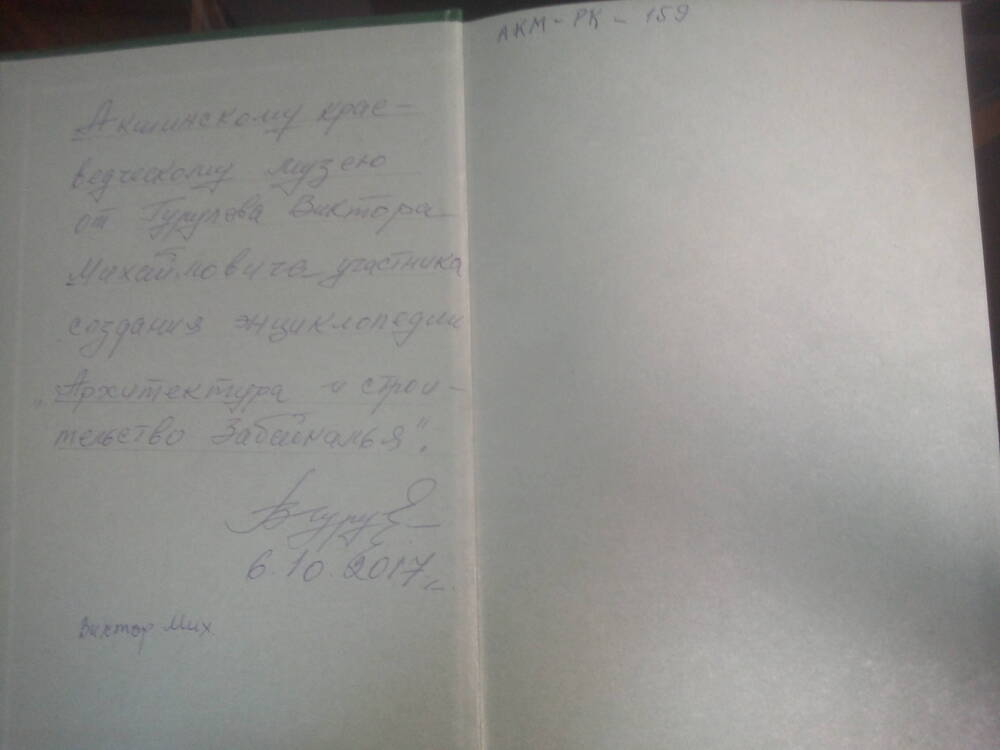 Акшинскому крае-
ведческому музею
от Гурулева Виктора
Михайловича участника
создания энциклопедии
„Архитектура и строи-
тельство Забайкалья".
6.10.2017г.
Виктор Мих.
АКМ - РК - 159